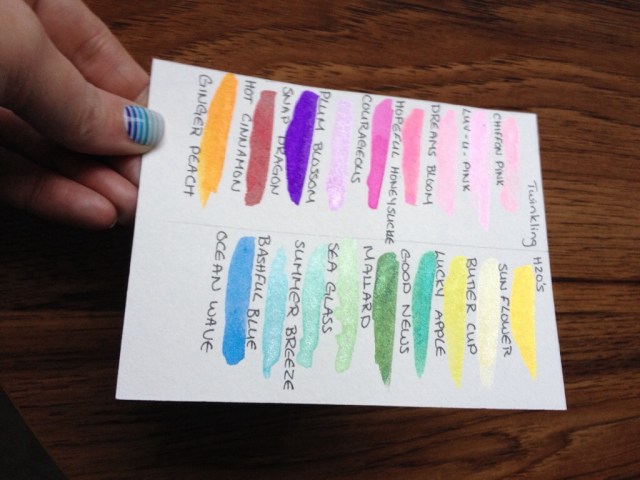 Twinkling H2O'S
CHIFFON PINK
LUV-U-PINK
DREAMS BLOOM
HOPEFUL HONEYSUCKLE
COURAGEOUS
PLUM BLOSSOM
SNAP DRAGON
HOT CINNAMON
GINGER PEACH
SUN FLOWER
BUTTER CUP
LUCKY APPLE
GOOD NEWS
MALLARD
SEA GLASS
SUMMER BREEZE
BASHFUL BLUE
OCEAN WAVE